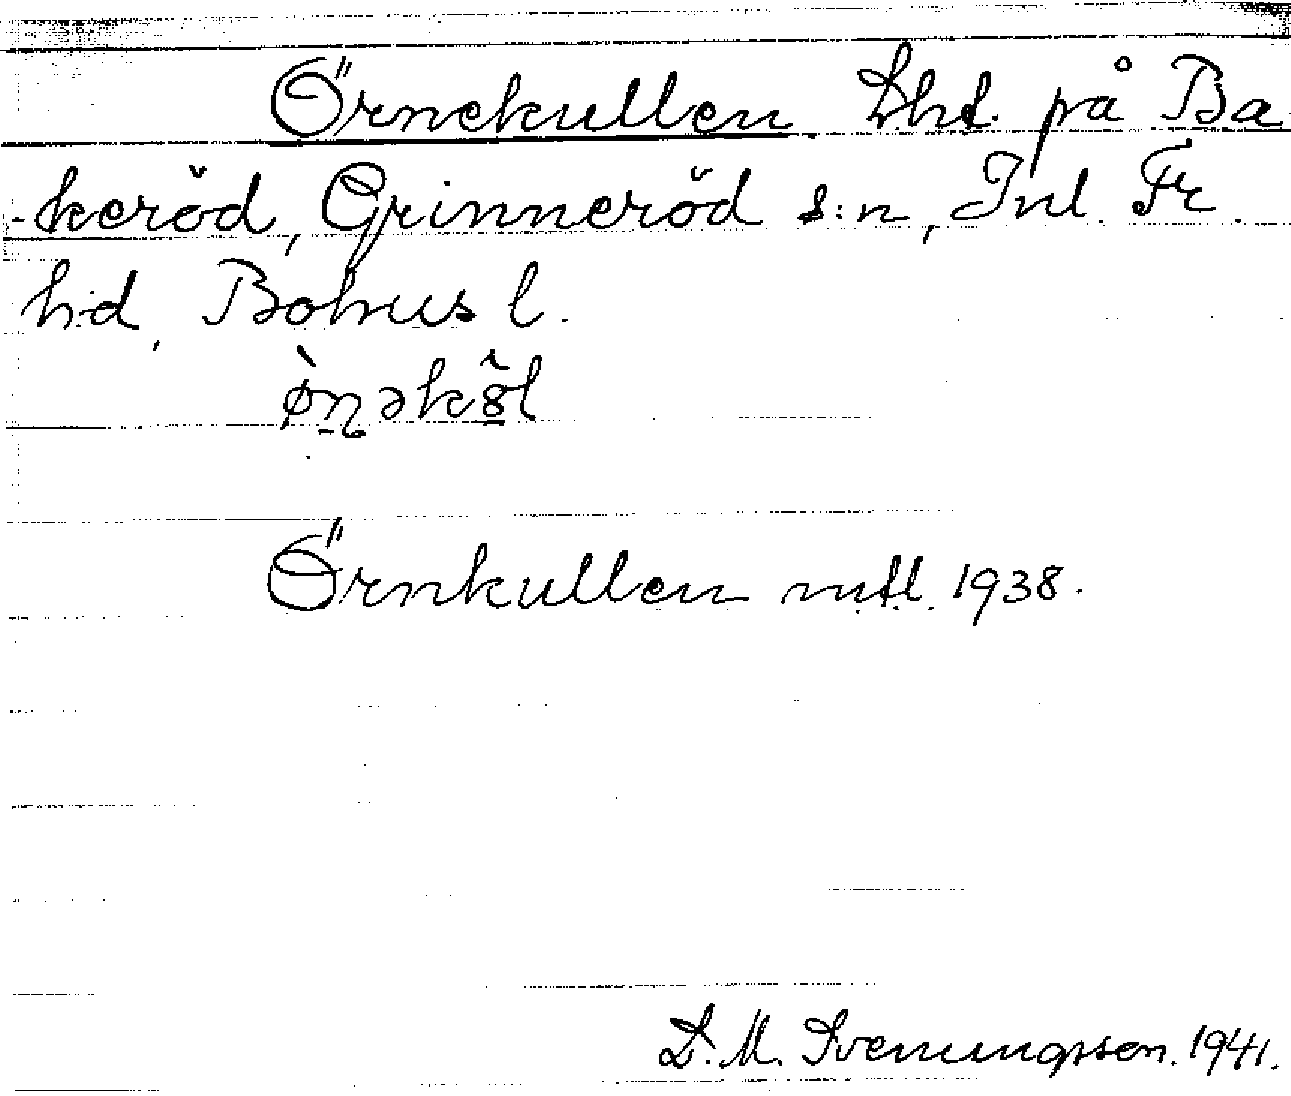 Örnekullen. Lht. på Ba
-keröd, Grinneröd s:n, Inl. Fr.
hd, Bohus l.
ø̀ɳəkȣ̃l
Örnkullen mtl. 1938.
D. M. Svenungsson. 1941.